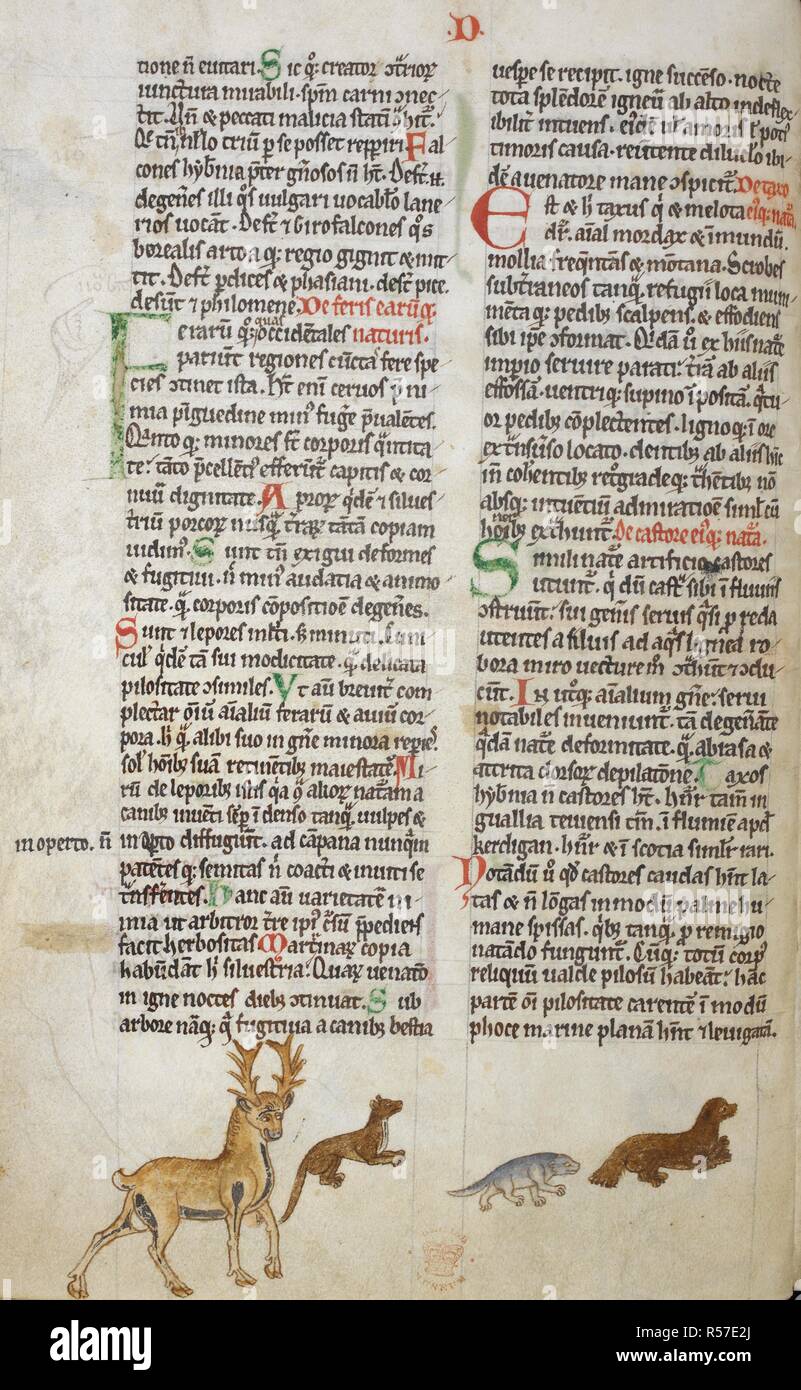 D
tione ñ euitari. Sic q̃: creator ɔtrioꝝ
iunctura mirabili. sp̃m carni ɔnec
tit. & peccati malicia
triū p se posset repperiri. Fal
cones hyb̃nia p̃ter gñosos ñ ht̃. Deſt̃ .n.
degeñes illi q̃s uulgari uocabl̃o lane
rios uocāt. Deſt̃ ⁊ Girofalcones q̃s
borealis arto a q; regio gignit & mit
tit. Deſt̃ p̃dices & phasiani. deſt̃ pice
desūt ⁊ philomene. De feris earūq;
naturis.
Ferarū q̃s occidētales
pariūt regiones cūcta fere spe
cies ɔtinet ista. Ht̃ eni ceruos p̃ ni
mia pīguedine min' fuge p̃ualētes.
Qñto q; minores st̃ corporis q̃ntita
te: tāto p̃cellēti' efferūt̃ capitis & cor
nuū dignitate. Aproꝝ q̃dē ⁊ silues
triū porcoꝝ nusq̃ t̃raꝝ tātā copiam
uidim'. Sunt tñ exigui deformes
& fugitiui. ñ min' audatia & animo
sitate. q̃ corporis cōpositiōe degeñes.
Sunt ⁊ lepores ml̃ti. s; minuti. Cuni
cul' q̃dē tā sui modicitate. q̃ delicata
pilositate ɔsimiles. Vt aū breuit̃ com
plectar oīū aīaliū feraꝝ & auiū cor
pora. h̃ q̃ alibi suo in gñe minora repies.
sol' hoib; suā retinētib; maiestatē. Mi
rū de leporib; istis
canib; inuēti semp̃ ī denso tanq̃ uulpes &
in opto diffugiūt. ad cāpana nunq̃m
in operto. ñ
patētesq; semitas ñ coacti & inuiti se
tñsfērētes. Hanc aū uarietatē ni
mia ut arbitror t̃re ipi' c̃sū p̃pediēs
facit herbositas. Martrinaꝝ copia
habūdāt h̃ siluestria. Quaꝝ uenatō
in igne noctes dieb; ɔtinuat. Sub
arbore nāq; q̃ fugitiua a canib; bestia
uespe se recipit. igne succēso. nocte
tota splēdorē igneū ab alto indeflex
ibilit̃ intuens. amoris poti'
timoris causa. reuitente diluclo ibi
dē a uenatore mane ɔspicit̃. De taxo
Est & h̃ taxus q̃ & melota ei'q; nat̃a
dr̃. aīal mordax & īmundū.
mollia freq̃ntās & mōtana. Scrobes
subt̃raneos tanq̃ refugii loca
mētaq; pedib; scalpens. & effodiens
sibi ipe ɔformat. Q̃dā ũ ex hiis nat̃e
īmpio seruire parati: t̃rā ab aliis
effossā. uentriq; supino īpositā. q̃tu
or pedib; cōplectentes. lignoq; ī ore
ex t̃nsũso locato. dentib; ab aliis hīc
īn cohentib; ret̃gradeq; t̃hētib; nō
absq; intuētiū admiratiōe siml̃ cū
hoib; ext̃huntur. De castore ei'q; nat̃a.
Simili nat̃e artificio castores
utunt̃. q̃ dū cast̃ sibi ī fluuiis
ɔstruūt: sui geñis seruis q̃si p reda
utentes a siluis ad aq̃s lignea ro
bora miro uecture m̃ ɔt̃hūt ⁊ ɔdu
cūt. In ut̃q; aīalium gñe: serui
notabiles inueniunt̃. tā degeñante
q̃dā nat̃e deformitate. q̃ abrasa &
attrita dorsoꝝ depilatōne. Taxos
hyb̃nia ñ castores ht̃. Hñt̃ tam̃ in
guallia teiuensi tm̃. ī flumīe apd̃
kerdigan. hñt̃ & ī scotia simlr̃ rari.
Notādū ũ q̃d castores caudas hñt la
tas & ñ lōgas in modū palme hu
mane spissas. q̃b; tanq̃ p remigio
natādo fungunt̃. Cūq; totū corp'
reliquū ualde pilosū habeāt: hac
partē oī pilositate carentē ī modū
phoce marine planā hñt ⁊ leuigatā.
alamy
alamy
Image ID: R57E2J
www.alamy.com